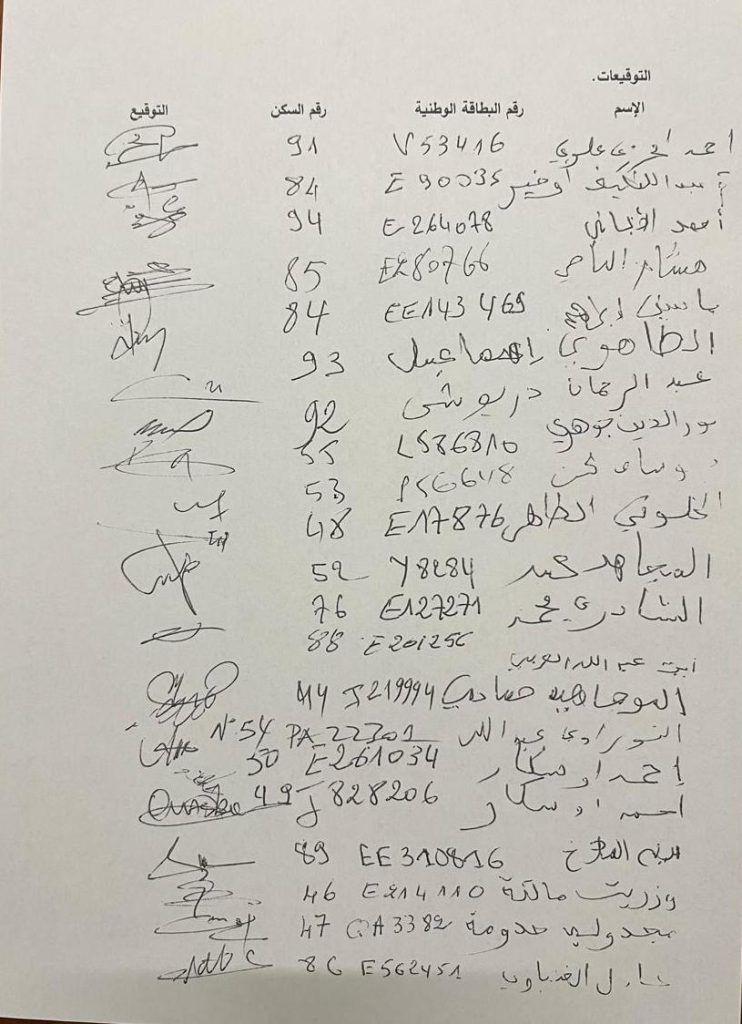 التوقيعات.
الإسم رقم البطاقة الوطنية رقم السكن التوقيع
احمد علوي V53416 91
عبد اللطيف اوخير E90035 84
أحمد E264078 94
هشام الناجي E280766 85
ياسين إبراهيم EE143469 84
الطاهري إسماعيل 93
عبد الرحمان دريوشي 92
نور الدين جوهري L586810 55
53
الخلوفي الطاهر E17876 48
المجاهد محمد Y8284 52
الشادري محمد E127271 76
ايت عبد الله العربي E201256 88
حمادي J219994 114
النوراوي عبد الله PA22301 N°54
احمد اوسكار E261034 50
احمد اوسكار J828206 49
EE310816 89
وزريت مالكة E214110 46
مجدولي حدومة QA3382 47
عادل E562451 86